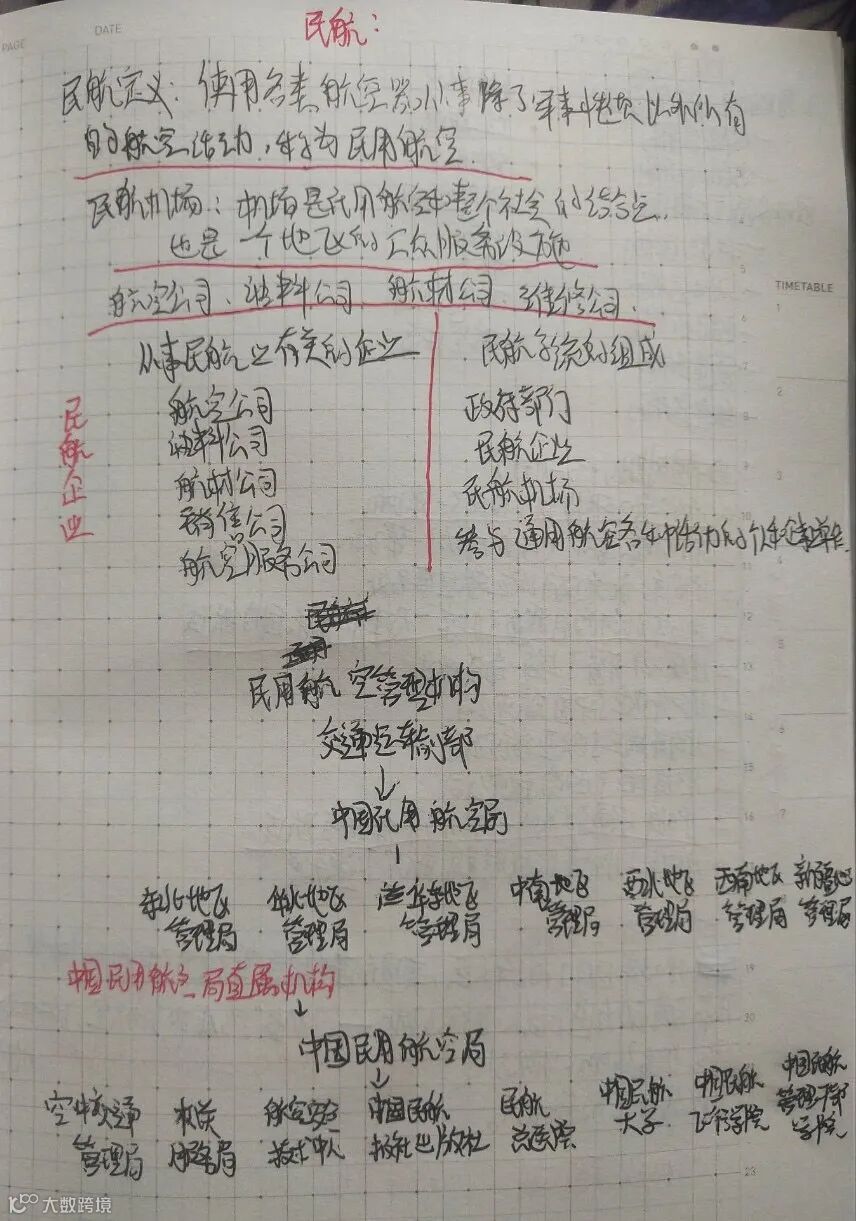 PAGE
DATE
民航：
民航定义：使用各类航空器从事除了军事性质以外所有
的航空活动，称为民用航空
民航机场：机场是民用航空和整个社会的结合点
也是一个地区的公众服务设施
航空公司、油料公司 航材公司 维修公司
TIMETABLE
从事民航业有关的企业
民航系统的组成
民航企业
航空公司
油料公司
航材公司
销售公司
航空服务公司
政府部门
民航企业
民航机场
参与通用航空各种活动的个人和企事业单位
民用航空管理机构
交通运输部
↓
中国民用航空局
东北地区
管理局
华北地区
管理局
华东地区
管理局
中南地区
管理局
西北地区
管理局
西南地区
管理局
新疆
管理局
中国民用航空局直属机构
↓
中国民用航空局
↓
空中交通
管理局
机关
服务局
航空安全
技术中心
中国民航
报社出版社
民航
总医院
中国民航
大学
中国民航
飞行学院
中国民航
管理干部
学院
大数跨境